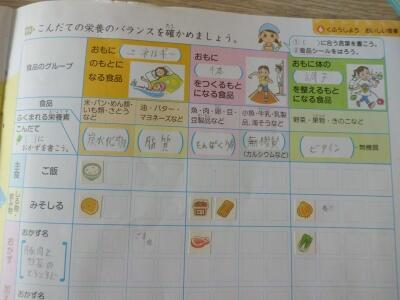 こんだての栄養のバランスを確かめましょう。
くふうしよう おいしい食事
①( )に合う言葉を書こう。
②食品シールをはろう。
食品のグループ
おもに
エネルギー
のもとに
なる食品
おもに
体
をつくるもと
になる食品
おもに体の
調子
を整えるもと
になる食品
食品
ふくまれる栄養素
こんだて
おかずを書こう。
米・パン・めん類・
いも類・さとう
など
油・バター・
マヨネーズなど
魚・肉・卵・豆・
豆製品など
小魚・牛乳・乳製
品、海そうなど
野菜・果物・きのこなど
炭水化物
脂質
たんぱく質
無機質
(カルシウムなど)
ビタミン
無機質
主食
ご飯
みそしる
おかず
おかず名
豚肉と
野菜の